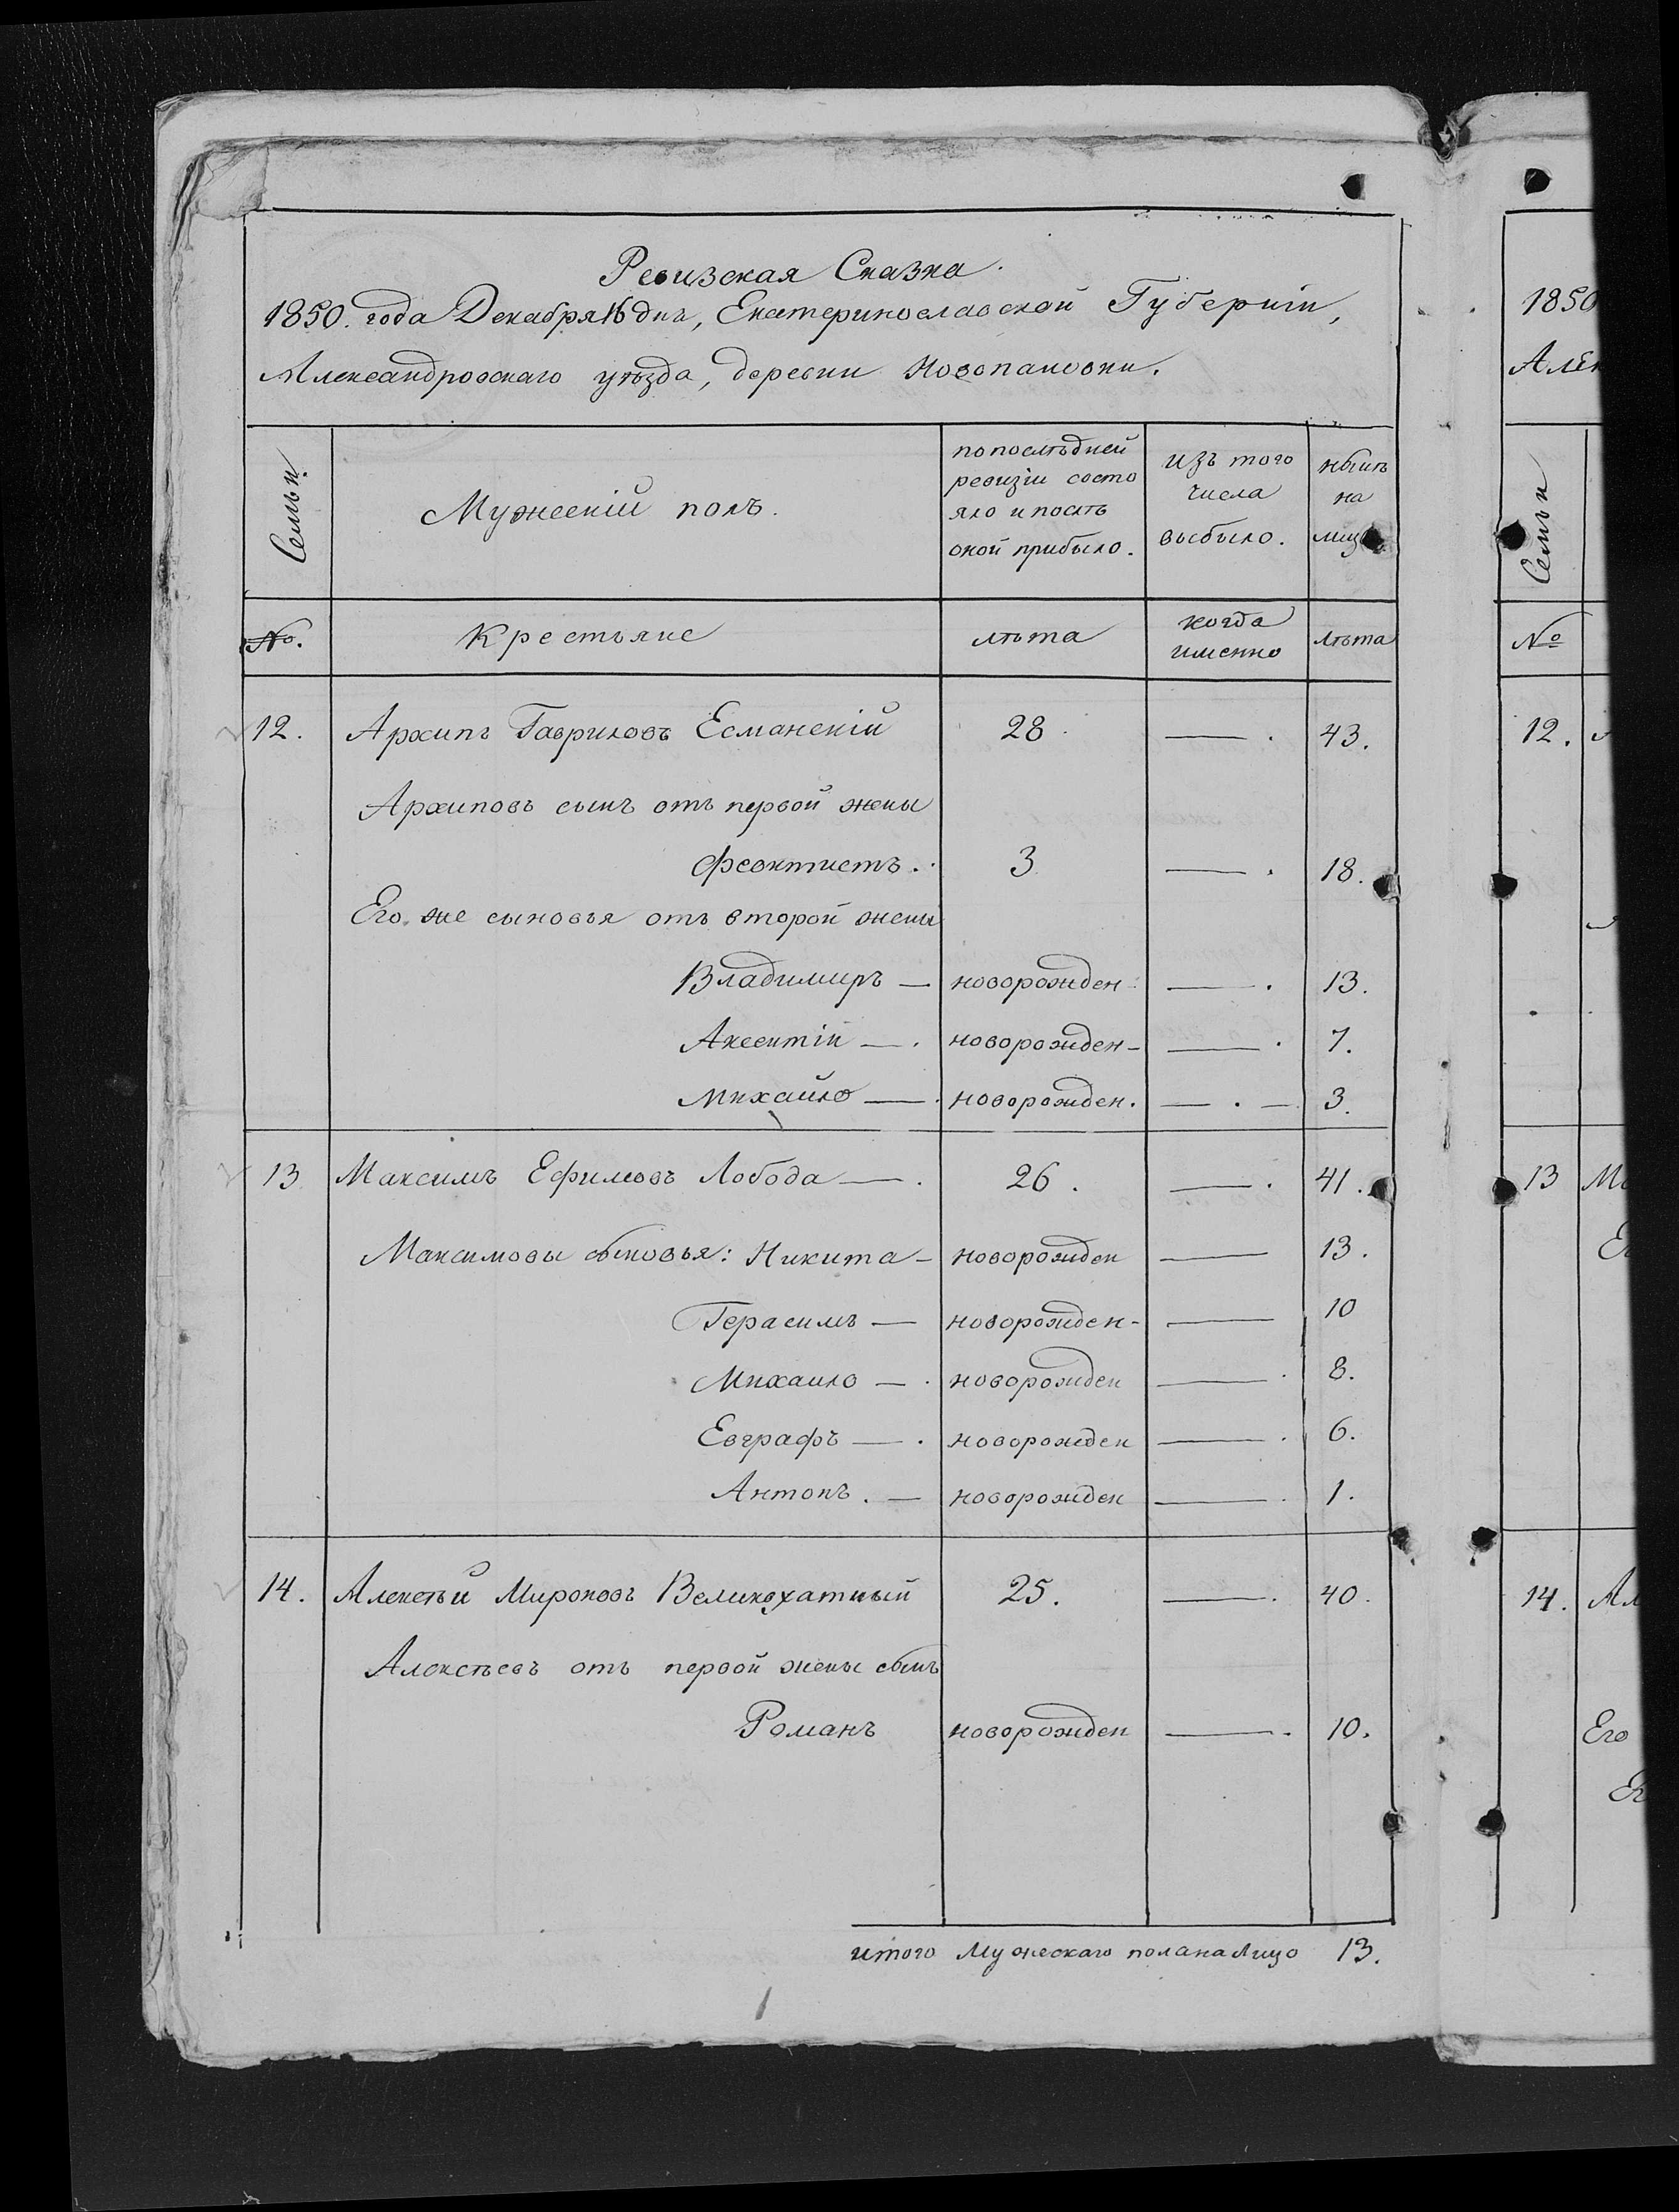 Ревизская Сказка.
1850. года Декабря 16 дня, Екатеринославской Губерніи,
Александровскаго уѣзда, деревни Новопановки.
Семьи.
Мужескій полъ.
по послѣдней
ревизіи состо
яло и послѣ
оной прибыло.
изъ того
числа
выбыло.
нынѣ
на
лицо.
№.
Крестьяне
лѣта
когда
именно
лѣта
12. Архипъ Гавриловъ Есманскій 28. — . 43.
Архиповъ сынъ отъ первой жены
Феоктистъ. 3 — . 18.
Его же сыновья отъ второй жены
Владимиръ — новорожден — . 13.
Аксентій — . новорожден — — . 7.
Михайло — . новорожден. — . — 3.
13 Максимъ Ефимовъ Лобода — . 26. — . 41.
Максимовы сыновья: Никита — новорожден — 13.
Герасимъ — новорожден — — 10
Михаило — . новорожден — . 8.
Евграфъ — . новорожден — . 6.
Антонъ. — новорожден — . 1.
14. Алексѣй Мироновъ Великохатный 25. — . 40.
Алексѣевъ отъ первой жены сынъ
Романъ новорожден — . 10.
итого Мужескаго пола на Лицо 13.
1850
Алек
Семьи
№
12.
13 Ма
14. Ал
Его